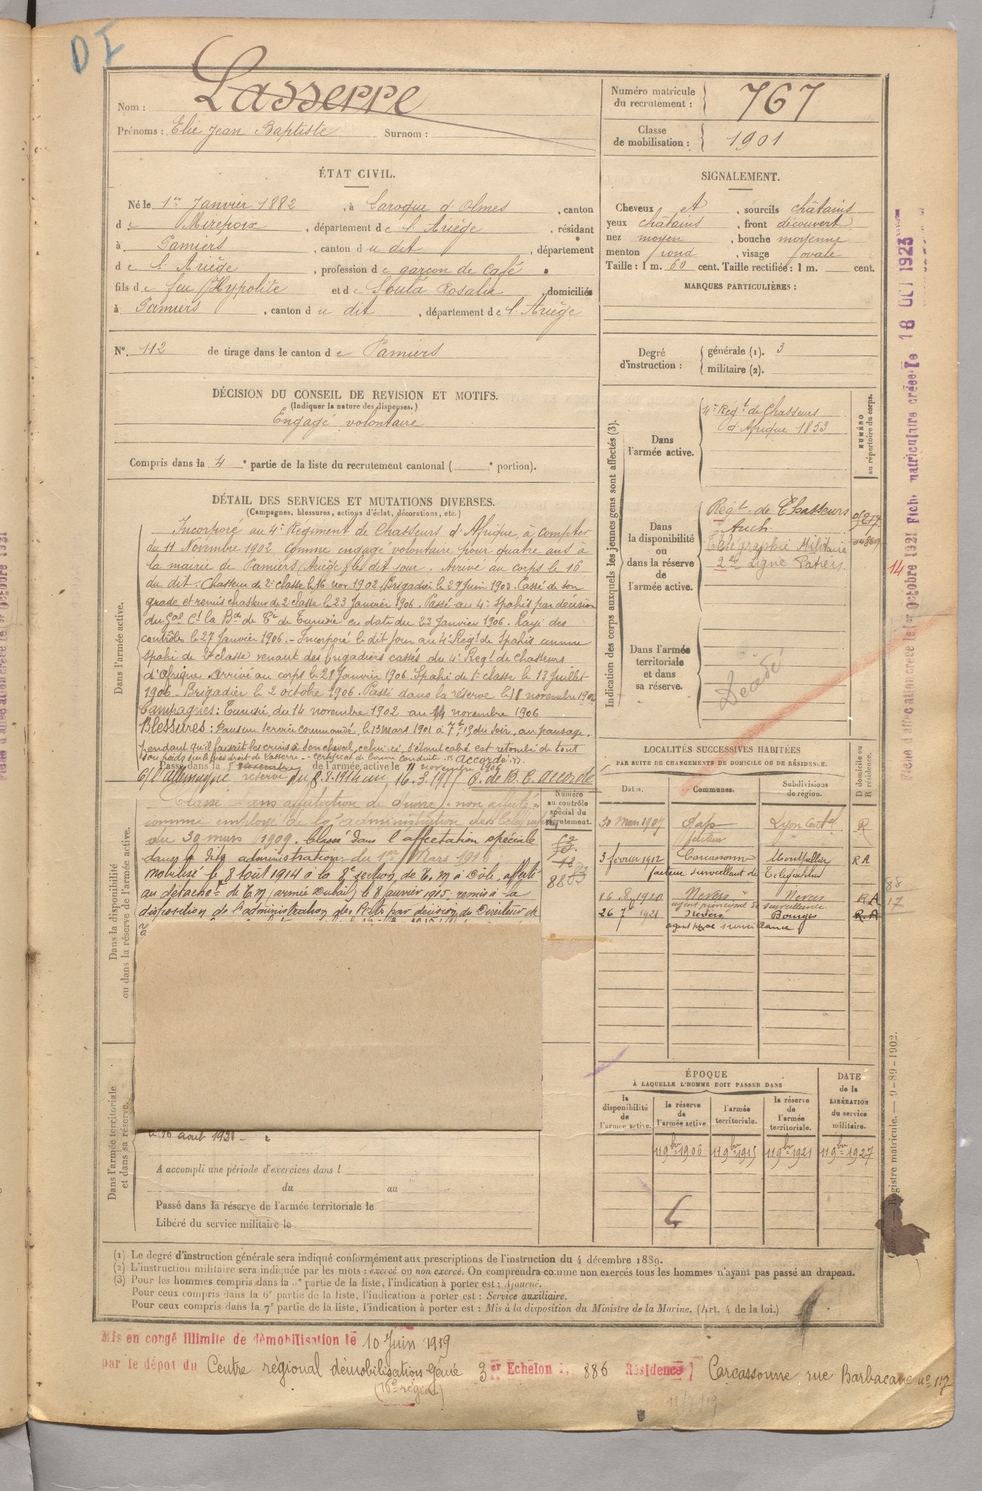 DI
Nom : Lasserre
Prénoms : Elie Jean Baptiste Surnom :
Numéro matricule du recrutement : 767
Classe de mobilisation : 1901
ÉTAT CIVIL.
Né le 1er Janvier 1882, à Laroque d'Olmes, canton
de Mirepoix, département de l'Ariège, résidant
à Pamiers, canton du dit, département
de l'Ariège, profession de garçon de Café
fils de feu Hypolite et de Soula Rosalie, domiciliés
à Pamiers, canton du dit, département de l'Ariège
N°. 112 de tirage dans le canton de Pamiers
SIGNALEMENT.
Cheveux et, sourcils châtains
yeux châtains, front découvert
nez moyen, bouche moyenne
menton rond, visage ovale
Taille : 1 m. 60 cent. Taille rectifiée : 1 m. cent.
MARQUES PARTICULIÈRES :
Degré d'instruction : générale (1). 3
militaire (2).
DÉCISION DU CONSEIL DE REVISION ET MOTIFS.
(Indiquer la nature des dispenses.)
Engagé volontaire
Compris dans la 4e partie de la liste du recrutement cantonal ( e portion).
DÉTAIL DES SERVICES ET MUTATIONS DIVERSES.
(Campagnes, blessures, actions d'éclat, décorations, etc.)
Dans l'armée active.
Incorporé au 4e Régiment de Chasseurs d'Afrique, à compter
du 11 Novembre 1902 comme engagé volontaire pour quatre ans à
la mairie de Pamiers, Ariège, les dit jour. Arrivé au corps le 16
du dit. Chasseur de 2e classe le 16 nov. 1902. Brigadier le 27 Juin 1903. Cassé de son
grade et remis chasseur de 2e classe le 23 Janvier 1906. Passé au 4e Spahis par décision
du Gal Ct la Bde de Tunisie en date du 23 Janvier 1906. Rayé des
contrôles le 27 Janvier 1906. Incorporé le dit jour au 4e Regt de Spahis comme
Spahi de 2e classe venant des brigadiers cassés du 4e Regt de Chasseurs
d'Afrique. Arrivé au corps le 29 Janvier 1906. Spahi de 1e classe le 13 Juillet
1906. Brigadier le 2 octobre 1906. Passé dans la réserve le 11 novembre 1906
Campagnes : Tunisie, du 14 novembre 1902 au 14 novembre 1906
Blessures : Dans un service commandé, le 13 mars 1901 à 7h du soir, au pansage,
pendant qu'il faisait les crins à son cheval, celui-ci s'étant cabré est retombé de tout
son poids sur le pied droit de Lasserre - certificat de bonne conduite "Accordé"
Passé dans la réserve de l'armée active le 11 novembre 1906
C/ l'Allemagne réserve du 8.8.1914 au 16.3.1915
Dans la disponibilité ou dans la réserve de l'armée active.
Classé dans affectation de guerre non affecté
comme employé de l'administration des
du 30 mars 1909. Classé dans l'affectation spéciale
dans la dite administration du 1er Mars 1911
mobilisé le 8 Août 1914 à la 8e section de T. M à Dole, affecté
au détachet de T M, armée Dubail le 8 janvier 1915. remis à la
disposition de l'administration des Postes par décision du Directeur de
Numéro au contrôle spécial du recrutement.
le 16 août 1921
Dans l'armée territoriale et dans sa réserve.
A accompli une période d'exercices dans l
du au
Passé dans la réserve de l'armée territoriale le
Libéré du service militaire le
Indication des corps auxquels les jeunes gens sont affectés (3).
Dans l'armée active.
4e Régt de Chasseurs
d'Afrique 1853
NUMÉRO au répertoire du corps.
Dans la disponibilité ou dans la réserve de l'armée active.
Régt de Chasseurs
Auch.
Télégraphie Militaire
2e Ligne
Dans l'armée territoriale et dans sa réserve.
Décédé
LOCALITÉS SUCCESSIVES HABITÉES
PAR SUITE DE CHANGEMENTS DE DOMICILE OU DE RÉSIDENCE.
Dates. Communes. Subdivisions de région. D domicile ou R résidence.
30 Mars 1907 Gap Lyon R
facteur
3 février 1912 Carcassonne Montpellier RA
facteur surveillant de
16.8.1920 Nevers Nevers R.A
agent principal de surveillance
26 7 1921 Nevers Bourges R.A
agent ppal surveillance
ÉPOQUE
À LAQUELLE L'HOMME DOIT PASSER DANS
la disponibilité de l'armée active. la réserve de l'armée active. l'armée territoriale. la réserve de l'armée territoriale. DATE de la LIBÉRATION du service militaire.
11 9bre 1906 11 9bre 1915 11 9bre 1921 11 9bre 1927
(1) Le degré d'instruction générale sera indiqué conformément aux prescriptions de l'instruction du 4 décembre 1889.
(2) L'instruction militaire sera indiquée par les mots : exercé ou non exercé. On comprendra comme non exercés tous les hommes n'ayant pas passé au drapeau.
(3) Pour les hommes compris dans la 5e partie de la liste, l'indication à porter est : Ajourné.
Pour ceux compris dans la 6e partie de la liste, l'indication à porter est : Service auxiliaire.
Pour ceux compris dans la 7e partie de la liste, l'indication à porter est : Mis à la disposition du Ministre de la Marine. (Art. 4 de la loi.)
Registre matricule. — 9-89-1902.
Mis en congé illimité de démobilisation le 10 Juin 1919
par le dépôt du Centre régional démobilisation Gené 3er Echelon 886 Résidence Carcassonne rue Barbacane n° 117
(16e région)
Fiche matriculaire créée le 18 OCT 1923